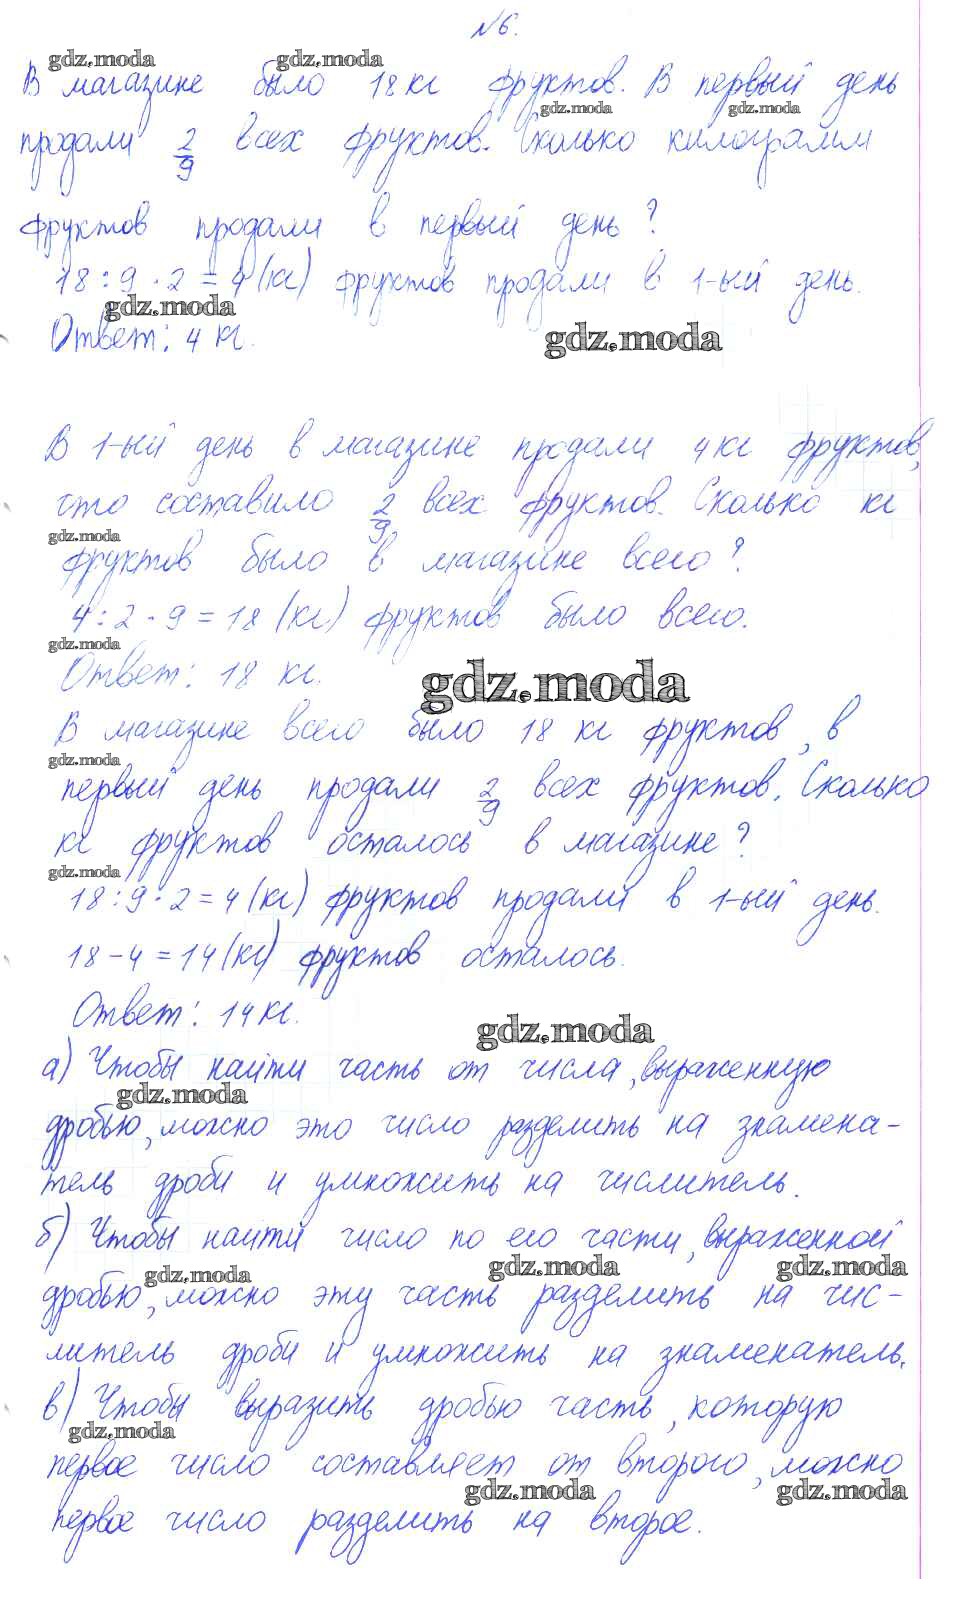 №6.
gdz.moda gdz.moda
В магазине было 18 кг фруктов. В первый день
gdz.moda gdz.moda
продали 2/9 всех фруктов. Сколько килограмм
фруктов продали в первый день?
18 : 9 · 2 = 4 (кг) фруктов продали в 1-ый день.
gdz.moda
Ответ: 4 кг.
gdz.moda
В 1-ый день в магазине продали 4 кг фруктов,
что составило 2/9 всех фруктов. Сколько кг
gdz.moda
фруктов было в магазине всего?
4 : 2 · 9 = 18 (кг) фруктов было всего.
gdz.moda
Ответ: 18 кг.
gdz.moda
В магазине всего было 18 кг фруктов, в
gdz.moda
первый день продали 2/9 всех фруктов. Сколько
кг фруктов осталось в магазине?
gdz.moda
18 : 9 · 2 = 4 (кг) фруктов продали в 1-ый день.
18 - 4 = 14 (кг) фруктов осталось.
Ответ: 14 кг.
gdz.moda
а) Чтобы найти часть от числа, выраженную
gdz.moda
дробью, можно это число разделить на знамена-
тель дроби и умножить на числитель.
б) Чтобы найти число по его части, выраженной
gdz.moda gdz.moda gdz.moda
дробью, можно эту часть разделить на чис-
литель дроби и умножить на знаменатель.
в) Чтобы выразить дробью часть, которую
gdz.moda
первое число составляет от второго, можно
gdz.moda gdz.moda
первое число разделить на второе.